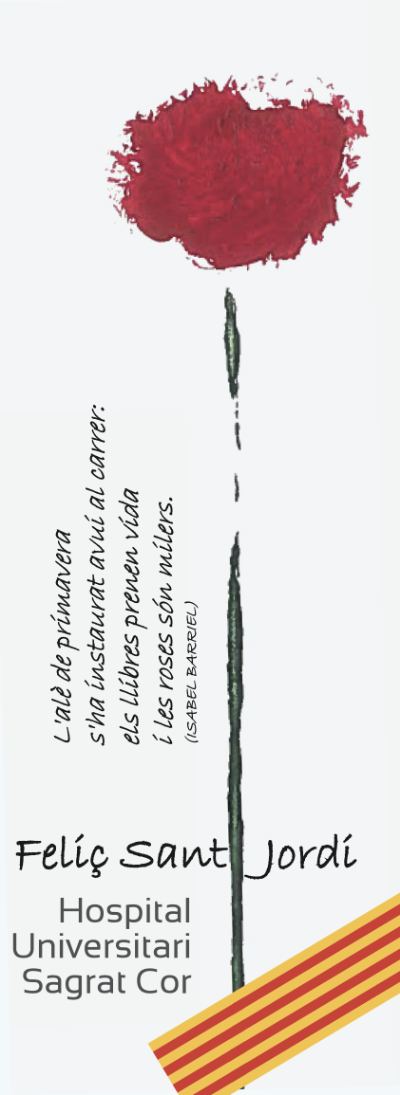 L'alè de primavera
s'ha instaurat avui al carrer:
els llibres prenen vida
i les roses són milers.
(ISABEL BARRIEL)
Feliç Sant Jordi
Hospital
Universitari
Sagrat Cor